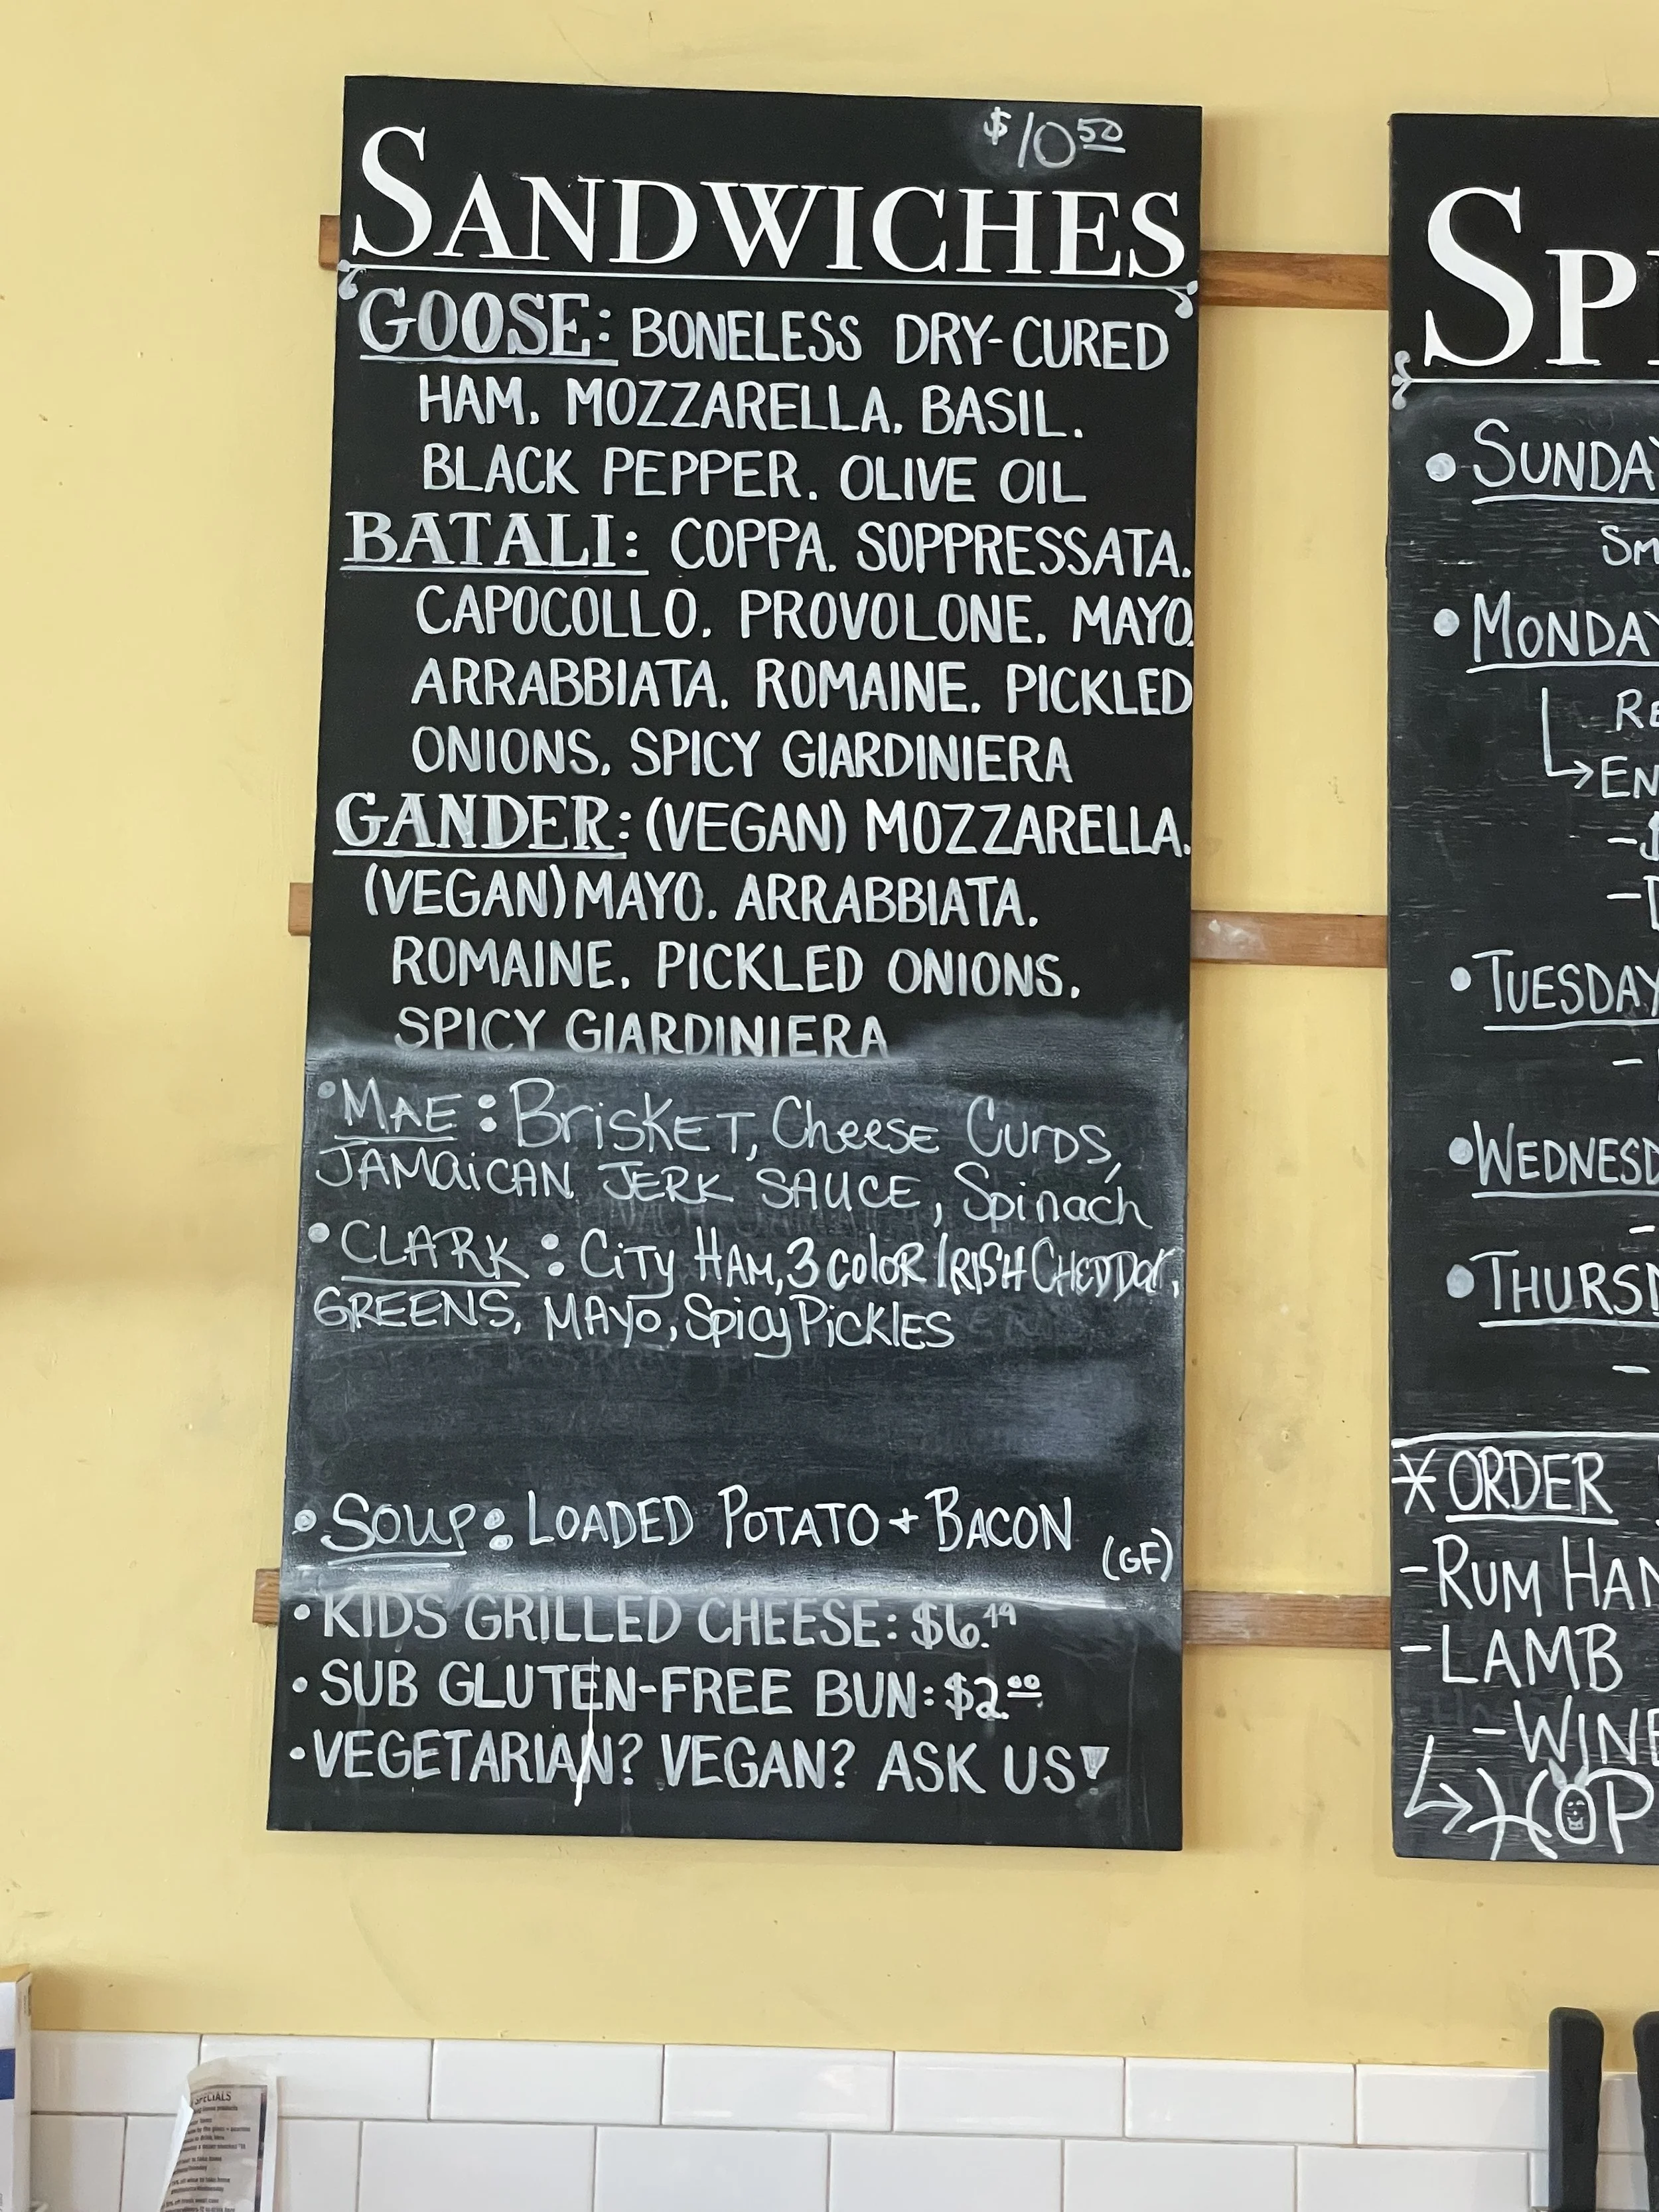 $10.50
SANDWICHES
GOOSE: BONELESS DRY-CURED
HAM. MOZZARELLA. BASIL.
BLACK PEPPER. OLIVE OIL
BATALI: COPPA. SOPPRESSATA.
CAPOCOLLO. PROVOLONE. MAYO.
ARRABBIATA. ROMAINE. PICKLED
ONIONS. SPICY GIARDINIERA
GANDER: (VEGAN) MOZZARELLA.
(VEGAN) MAYO. ARRABBIATA.
ROMAINE. PICKLED ONIONS.
SPICY GIARDINIERA
• MAE: BrisKET, CheesE CurDs,
JAMaiCAN JERK SAUCE, Spinach
• CLARK: CiTy HAM, 3 color IRISH CHEDDar,
GREENS, MAyo, Spicy PicklES
• SOUP: LOADED POTATO + BACON (GF)
• KIDS GRILLED CHEESE: $6.49
• SUB GLUTEN-FREE BUN: $2.00
• VEGETARIAN? VEGAN? ASK US!
SP
• SUNDAY
SM
• MONDAY
RE
EN
• TUESDAY
• WEDNESD
• THURSD
* ORDER
- RUM HAN
- LAMB
- WINE
HOP
SPECIALS